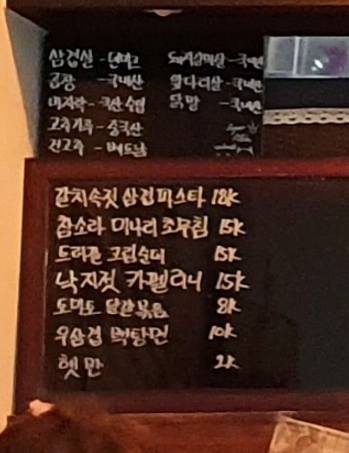 삼겹살 - 덴마크 돼지갈비살 - 국내산
곱창 - 국내산 앞다리살 - 국내산
바지락 - 국산 수입 닭발 - 국내산
고추가루 - 중국산
건고추 - 베트남
갈치속젓 삼겹파스타 18k
참소라 미나리초무침 15k
트러플 크림순대 15k
낙지젓 카펠리니 15k
토마토 달걀볶음 8k
우삼겹 먹탕면 10k
햇반 2k